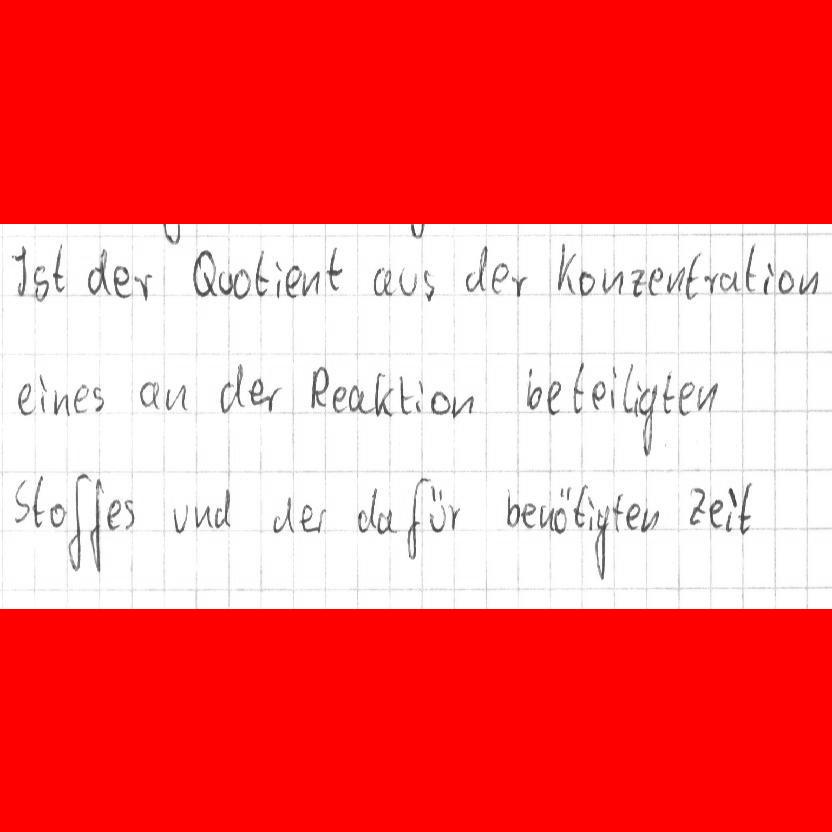 Ist der Quotient aus der Konzentration
eines an der Reaktion beteiligten
Stoffes und der dafür benötigten Zeit